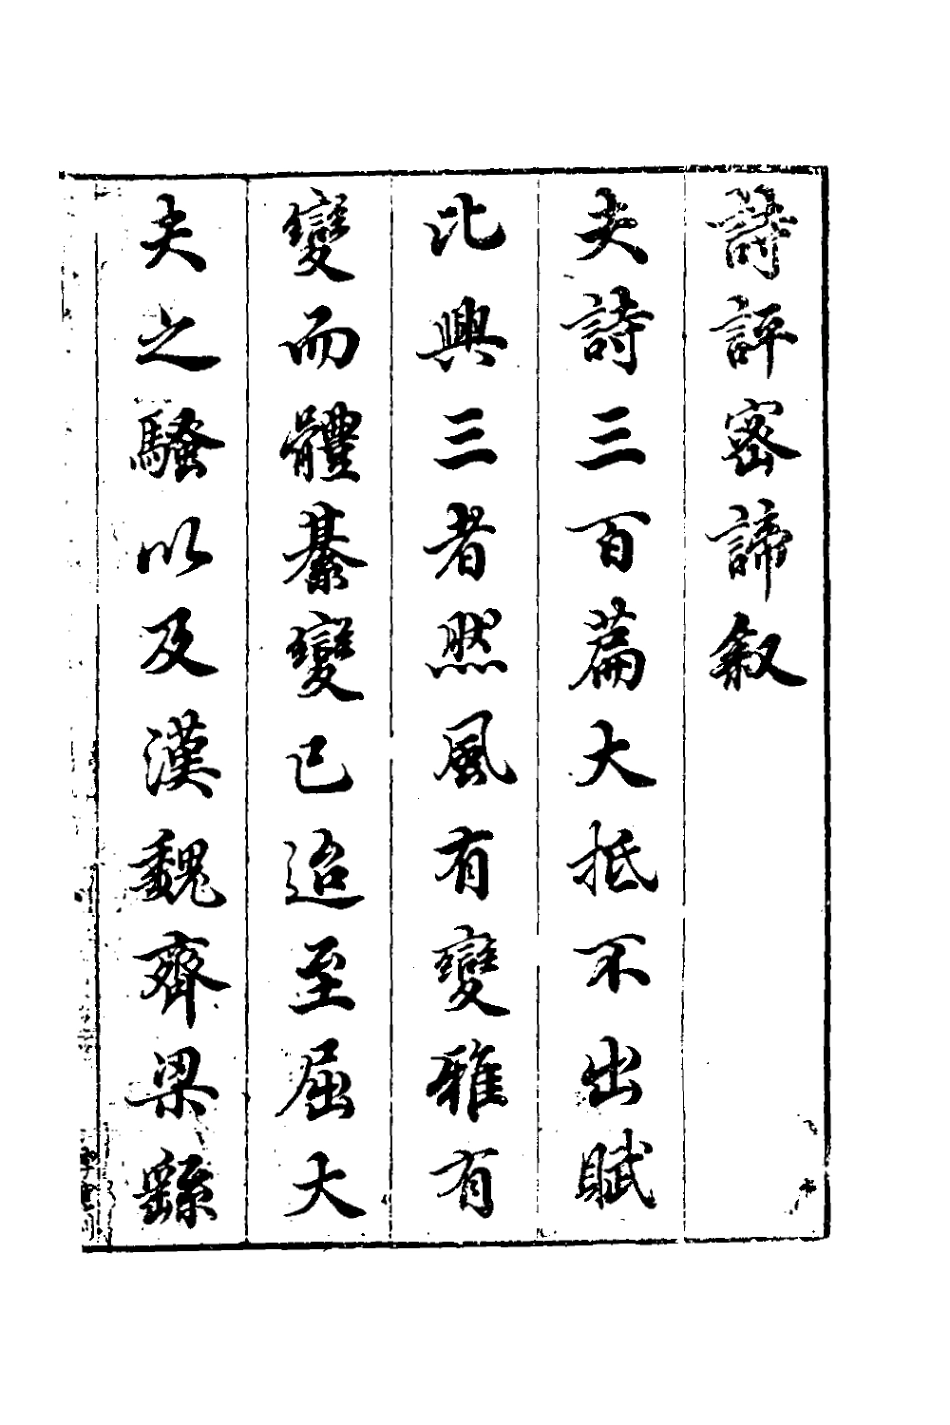 詩評密諦叙
夫詩三百篇大抵不出賦
比興三者然風有變雅有
變而體綦變已迨至屈大
夫之騷以及漢魏齊梁繇